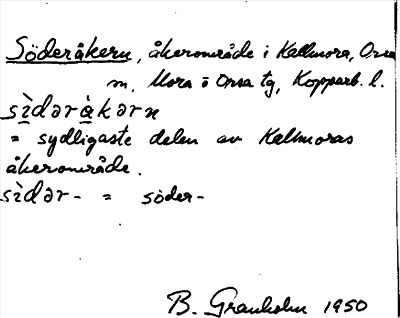 Söderåkern, åkerområde i Kallmora, Orsa
m, Mora o Orsa tg, Kopparb. l.
sìdərằkərn
= sydligaste delen av Kallmoras
åkerområde.
sìdər- = söder-
B. Granholm 1950